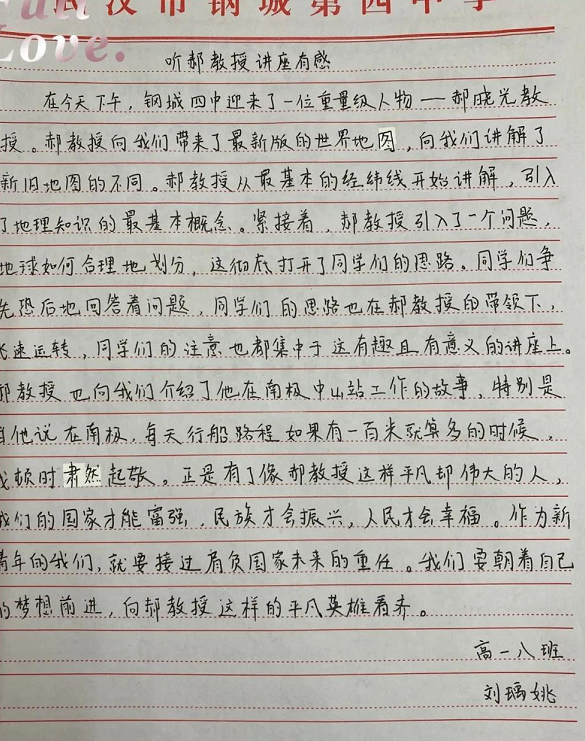 武汉市钢城第四中学
Full
Love.
听郝教授讲座有感
在今天下午，钢城四中迎来了一位重量级人物——郝晓光教
授。郝教授向我们带来了最新版的世界地图，向我们讲解了
新旧地图的不同。郝教授从最基本的经纬线开始讲解，引入
了地理知识的最基本概念。紧接着，郝教授引入了一个问题，
地球如何合理地划分，这彻底打开了同学们的思路。同学们争
先恐后地回答着问题，同学们的思路也在郝教授的带领下，
速运转，同学们的注意也都集中于这有趣且有意义的讲座上。
郝教授也向我们介绍了他在南极中山站工作的故事，特别是
当他说在南极，每天行船路程如果有一百米就算多的时候，
我顿时肃然起敬。正是有了像郝教授这样平凡却伟大的人，
我们的国家才能富强，民族才会振兴，人民才会幸福。作为新
青年的我们，就要接过肩负国家未来的重任。我们要朝着自己
的梦想前进，向郝教授这样的平凡英雄看齐。
高一八班
刘瑀姚